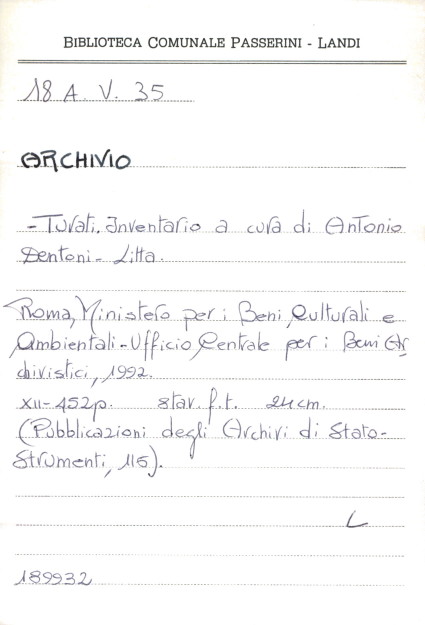 BIBLIOTECA COMUNALE PASSERINI - LANDI
18 A. V. 35
ARCHIVIO
- Turati. Inventario a cura di Antonio
Dentoni - Litta.
Roma, Ministero per i Beni Culturali e
Ambientali - Ufficio Centrale per i Beni Ar
chivistici, 1992.
XII-452p. 8tav. f.t. 24cm.
(Pubblicazioni degli Archivi di Stato-
Strumenti, 115).
L
189932